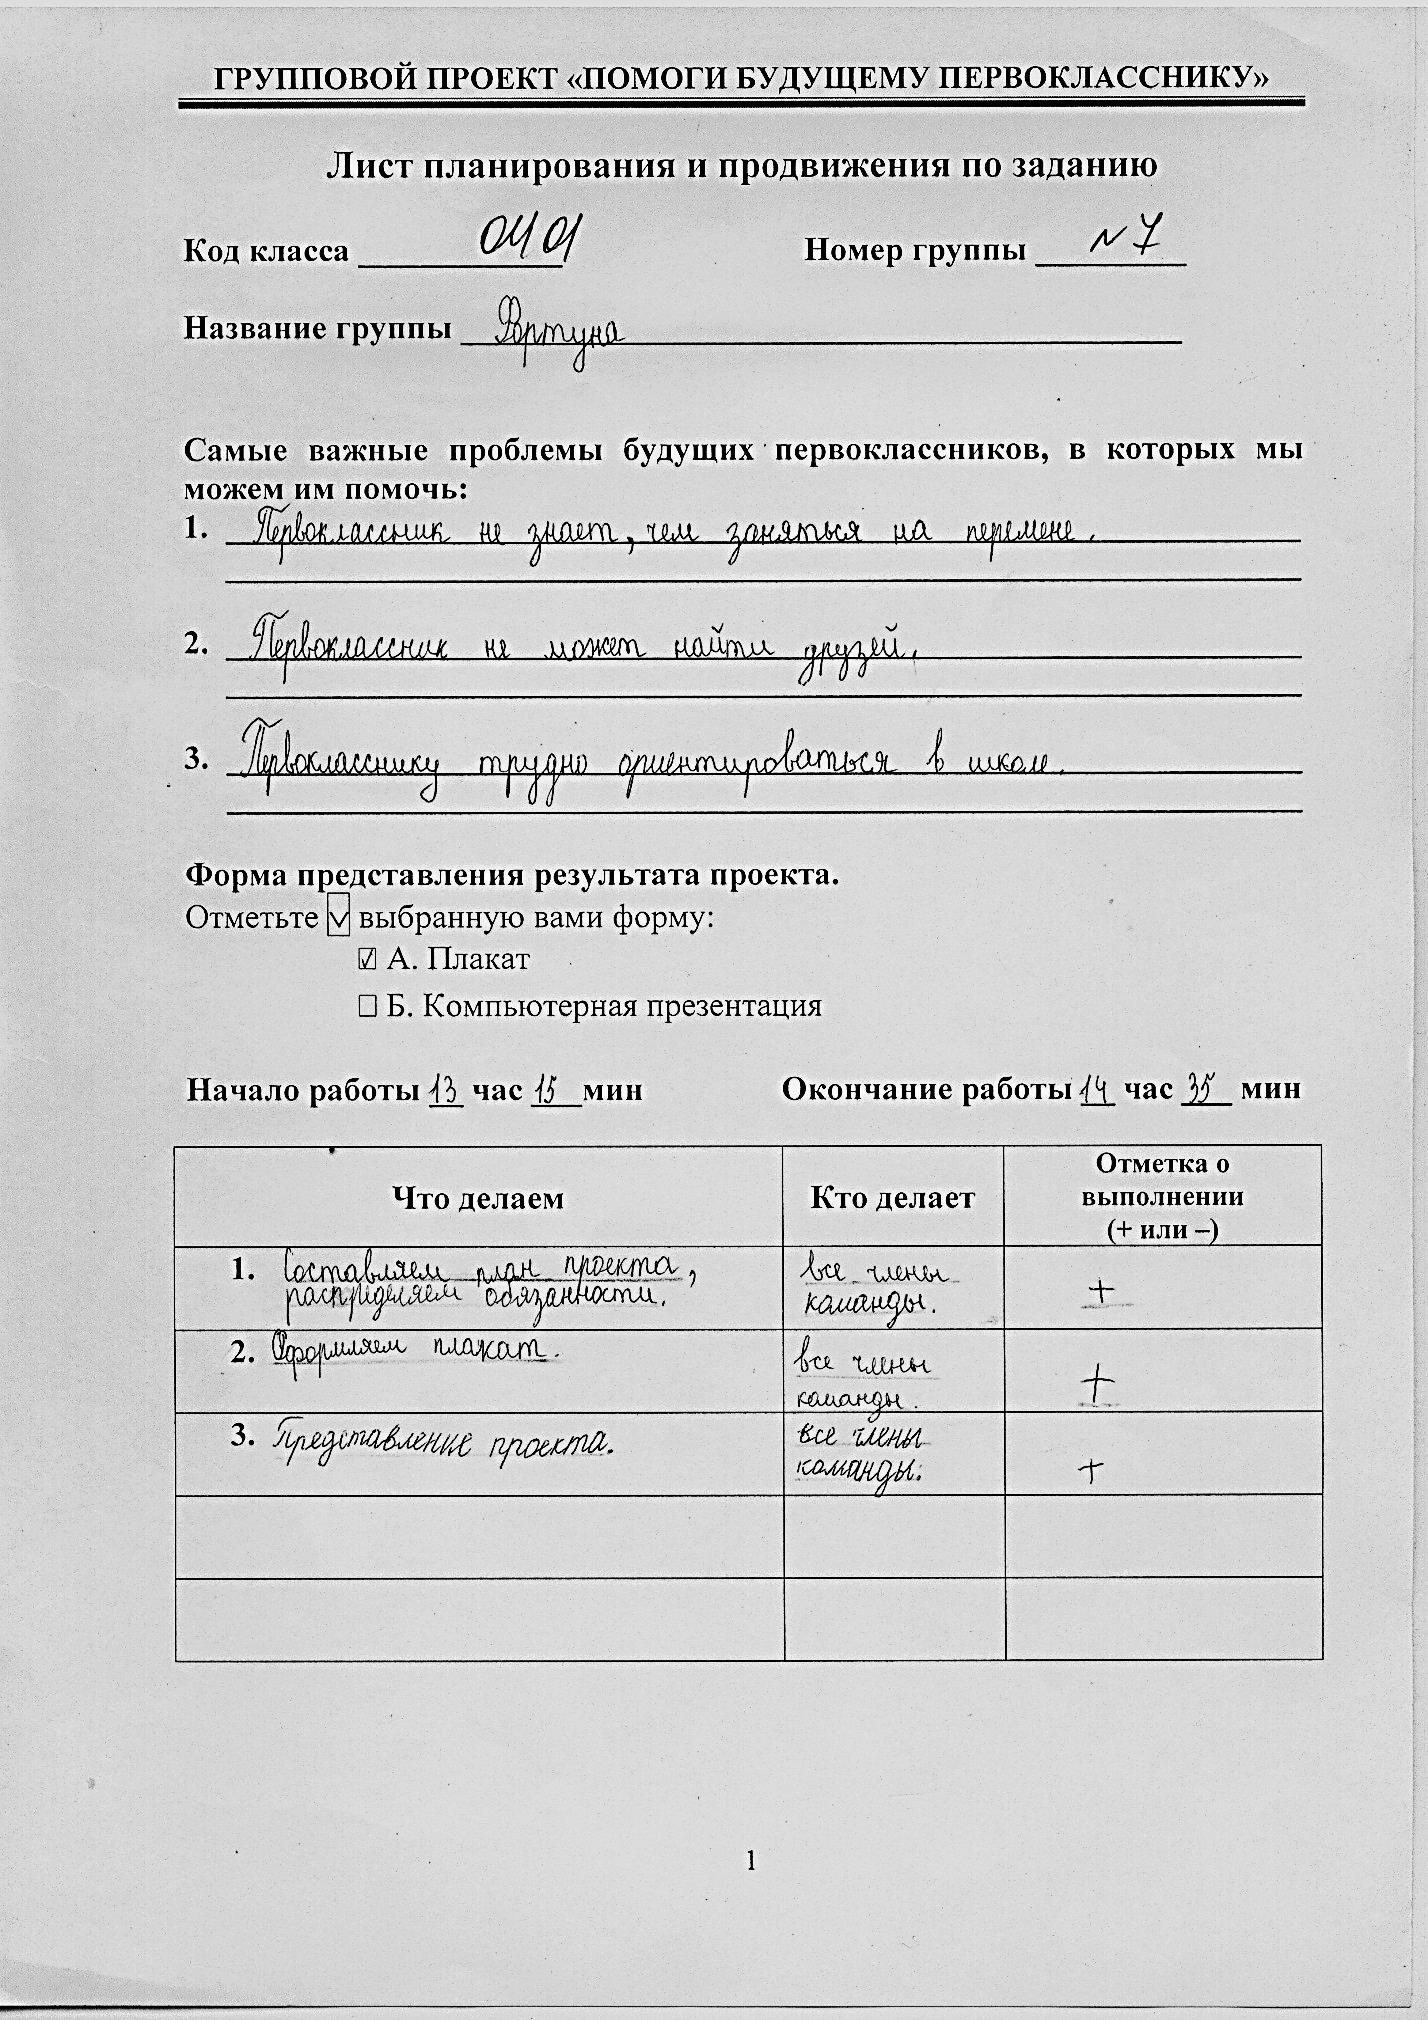 ГРУППОВОЙ ПРОЕКТ «ПОМОГИ БУДУЩЕМУ ПЕРВОКЛАССНИКУ»
Лист планирования и продвижения по заданию
Код класса 0401 Номер группы №7
Название группы Фортуна
Самые важные проблемы будущих первоклассников, в которых мы
можем им помочь:
1. Первоклассник не знает, чем заняться на перемене.
2. Первоклассник не может найти друзей.
3. Первокласснику трудно ориентироваться в школе.
Форма представления результата проекта.
Отметьте ☑ выбранную вами форму:
☑ А. Плакат
☐ Б. Компьютерная презентация
Начало работы 13 час 15 мин Окончание работы 14 час 35 мин
Что делаем Кто делает Отметка о
выполнении
(+ или –)
1. Составляем план проекта, все члены
распределяем обязанности. команды. +
2. Оформляем плакат. все члены
команды. +
3. Представление проекта. все члены
команды. +
1